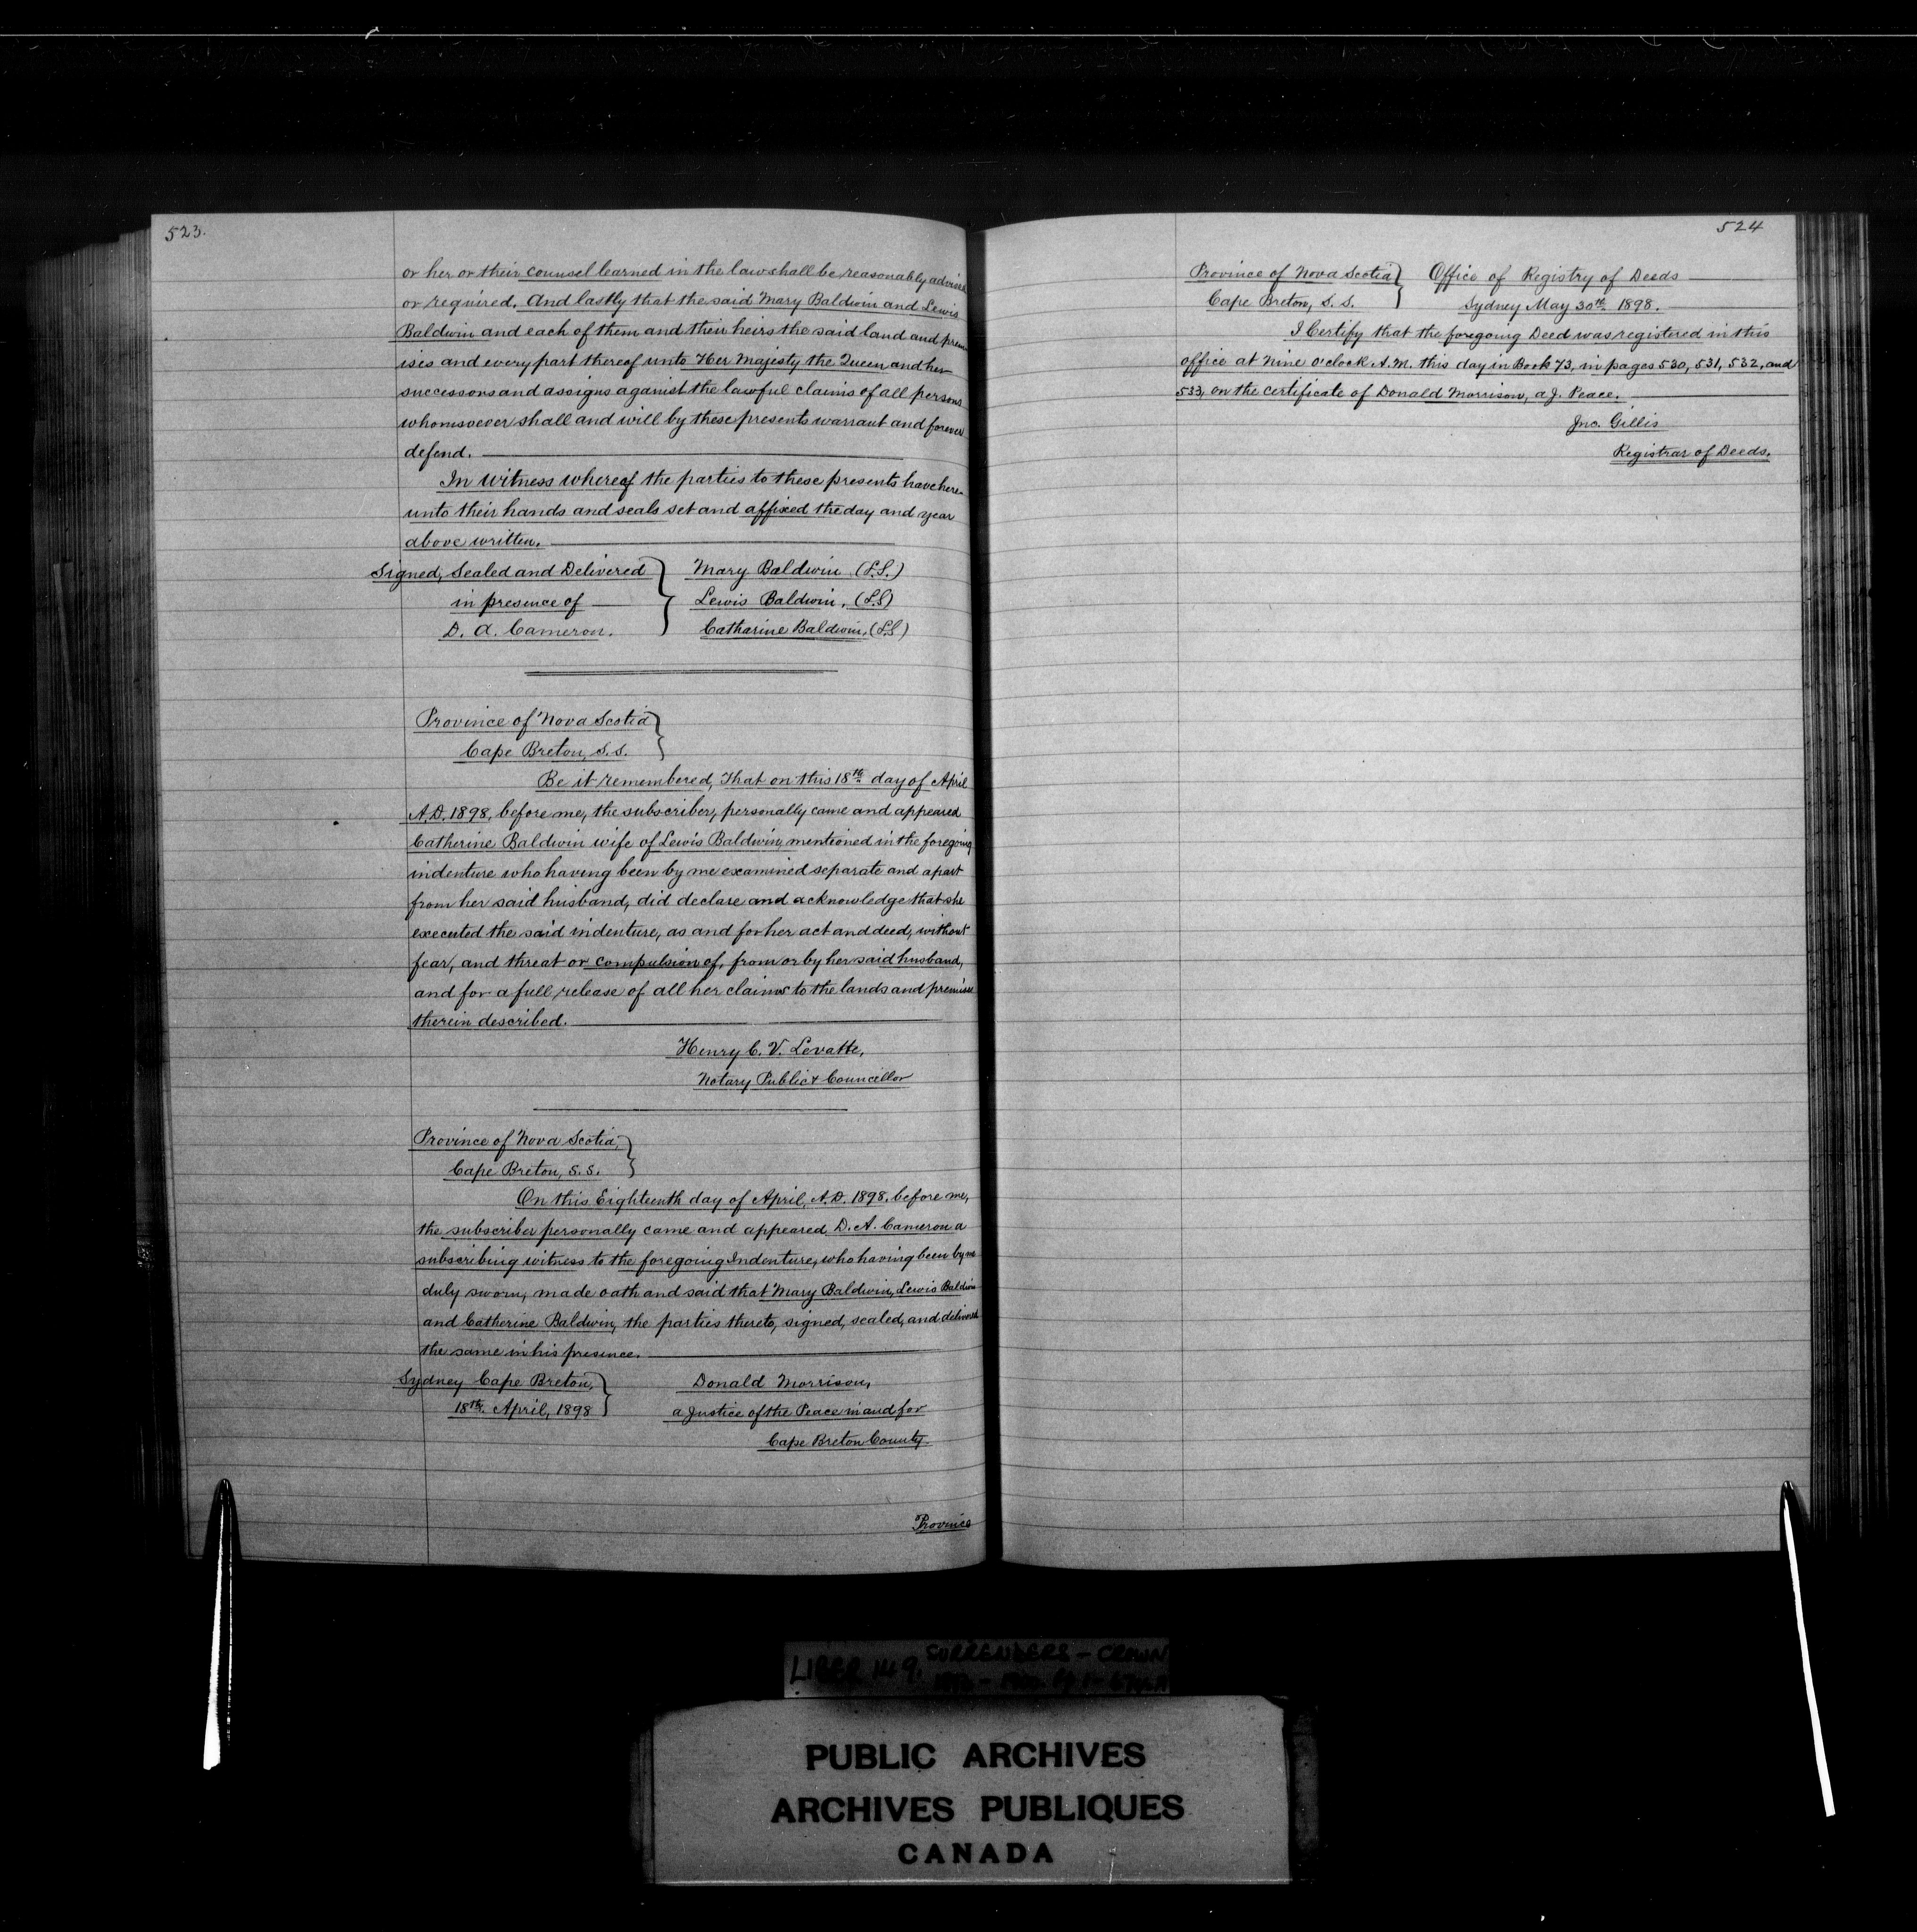 523.
or her or their counsel learned in the law shall be reasonably advised
or required. And lastly that the said Mary Baldwin and Lewis
Baldwin and each of them and their heirs the said land and prem-
ises and every part thereof unto Her Majesty the Queen and her
successors and assigns against the lawful claims of all persons
whomsoever shall and will by these presents warrant and forever
defend.
In witness whereof the parties to these presents have here-
unto their hands and seals set and affixed the day and year
above written.
Signed, Sealed and Delivered } Mary Baldwin (L.S.)
in presence of Lewis Baldwin, (L.S)
D. A. Cameron. Catharine Baldwin, (L.S)
Province of Nova Scotia }
Cape Breton, S.S.
Be it remembered, That on this 18th day of April
A.D. 1898, before me, the subscriber, personally came and appeared
Catherine Baldwin wife of Lewis Baldwin, mentioned in the foregoing
indenture who having been by me examined separate and apart
from her said husband, did declare and acknowledge that she
executed the said indenture, as and for her act and deed, without
fear, and threat or compulsion of, from or by her said husband,
and for a full release of all her claims to the lands and premises
therein described.
Henry C. V. Levatte,
Notary Public & Councillor
Province of Nova Scotia, }
Cape Breton, S.S.
On this Eighteenth day of April, A.D. 1898, before me,
the subscriber personally came and appeared D. A. Cameron a
subscribing witness to the foregoing Indenture, who having been by me
duly sworn, made oath and said that Mary Baldwin, Lewis Baldwin
and Catherine Baldwin, the parties thereto, signed, sealed, and delivered
the same in his presence.
Sydney Cape Breton, } Donald Morrison,
18th. April, 1898 a Justice of the Peace in and for
Cape Breton County
Province
524
Province of Nova Scotia } Office of Registry of Deeds
Cape Breton, S.S. Sydney May 30th 1898.
I Certify that the foregoing Deed was registered in this
office at Nine O'clock A.M. this day in Book 73, in pages 530, 531, 532, and
533, on the certificate of Donald Morrison, a J. Peace.
Jno. Gillis
Registrar of Deeds.
LIBER 149. SURRENDERS - CROWN
PUBLIC ARCHIVES
ARCHIVES PUBLIQUES
CANADA